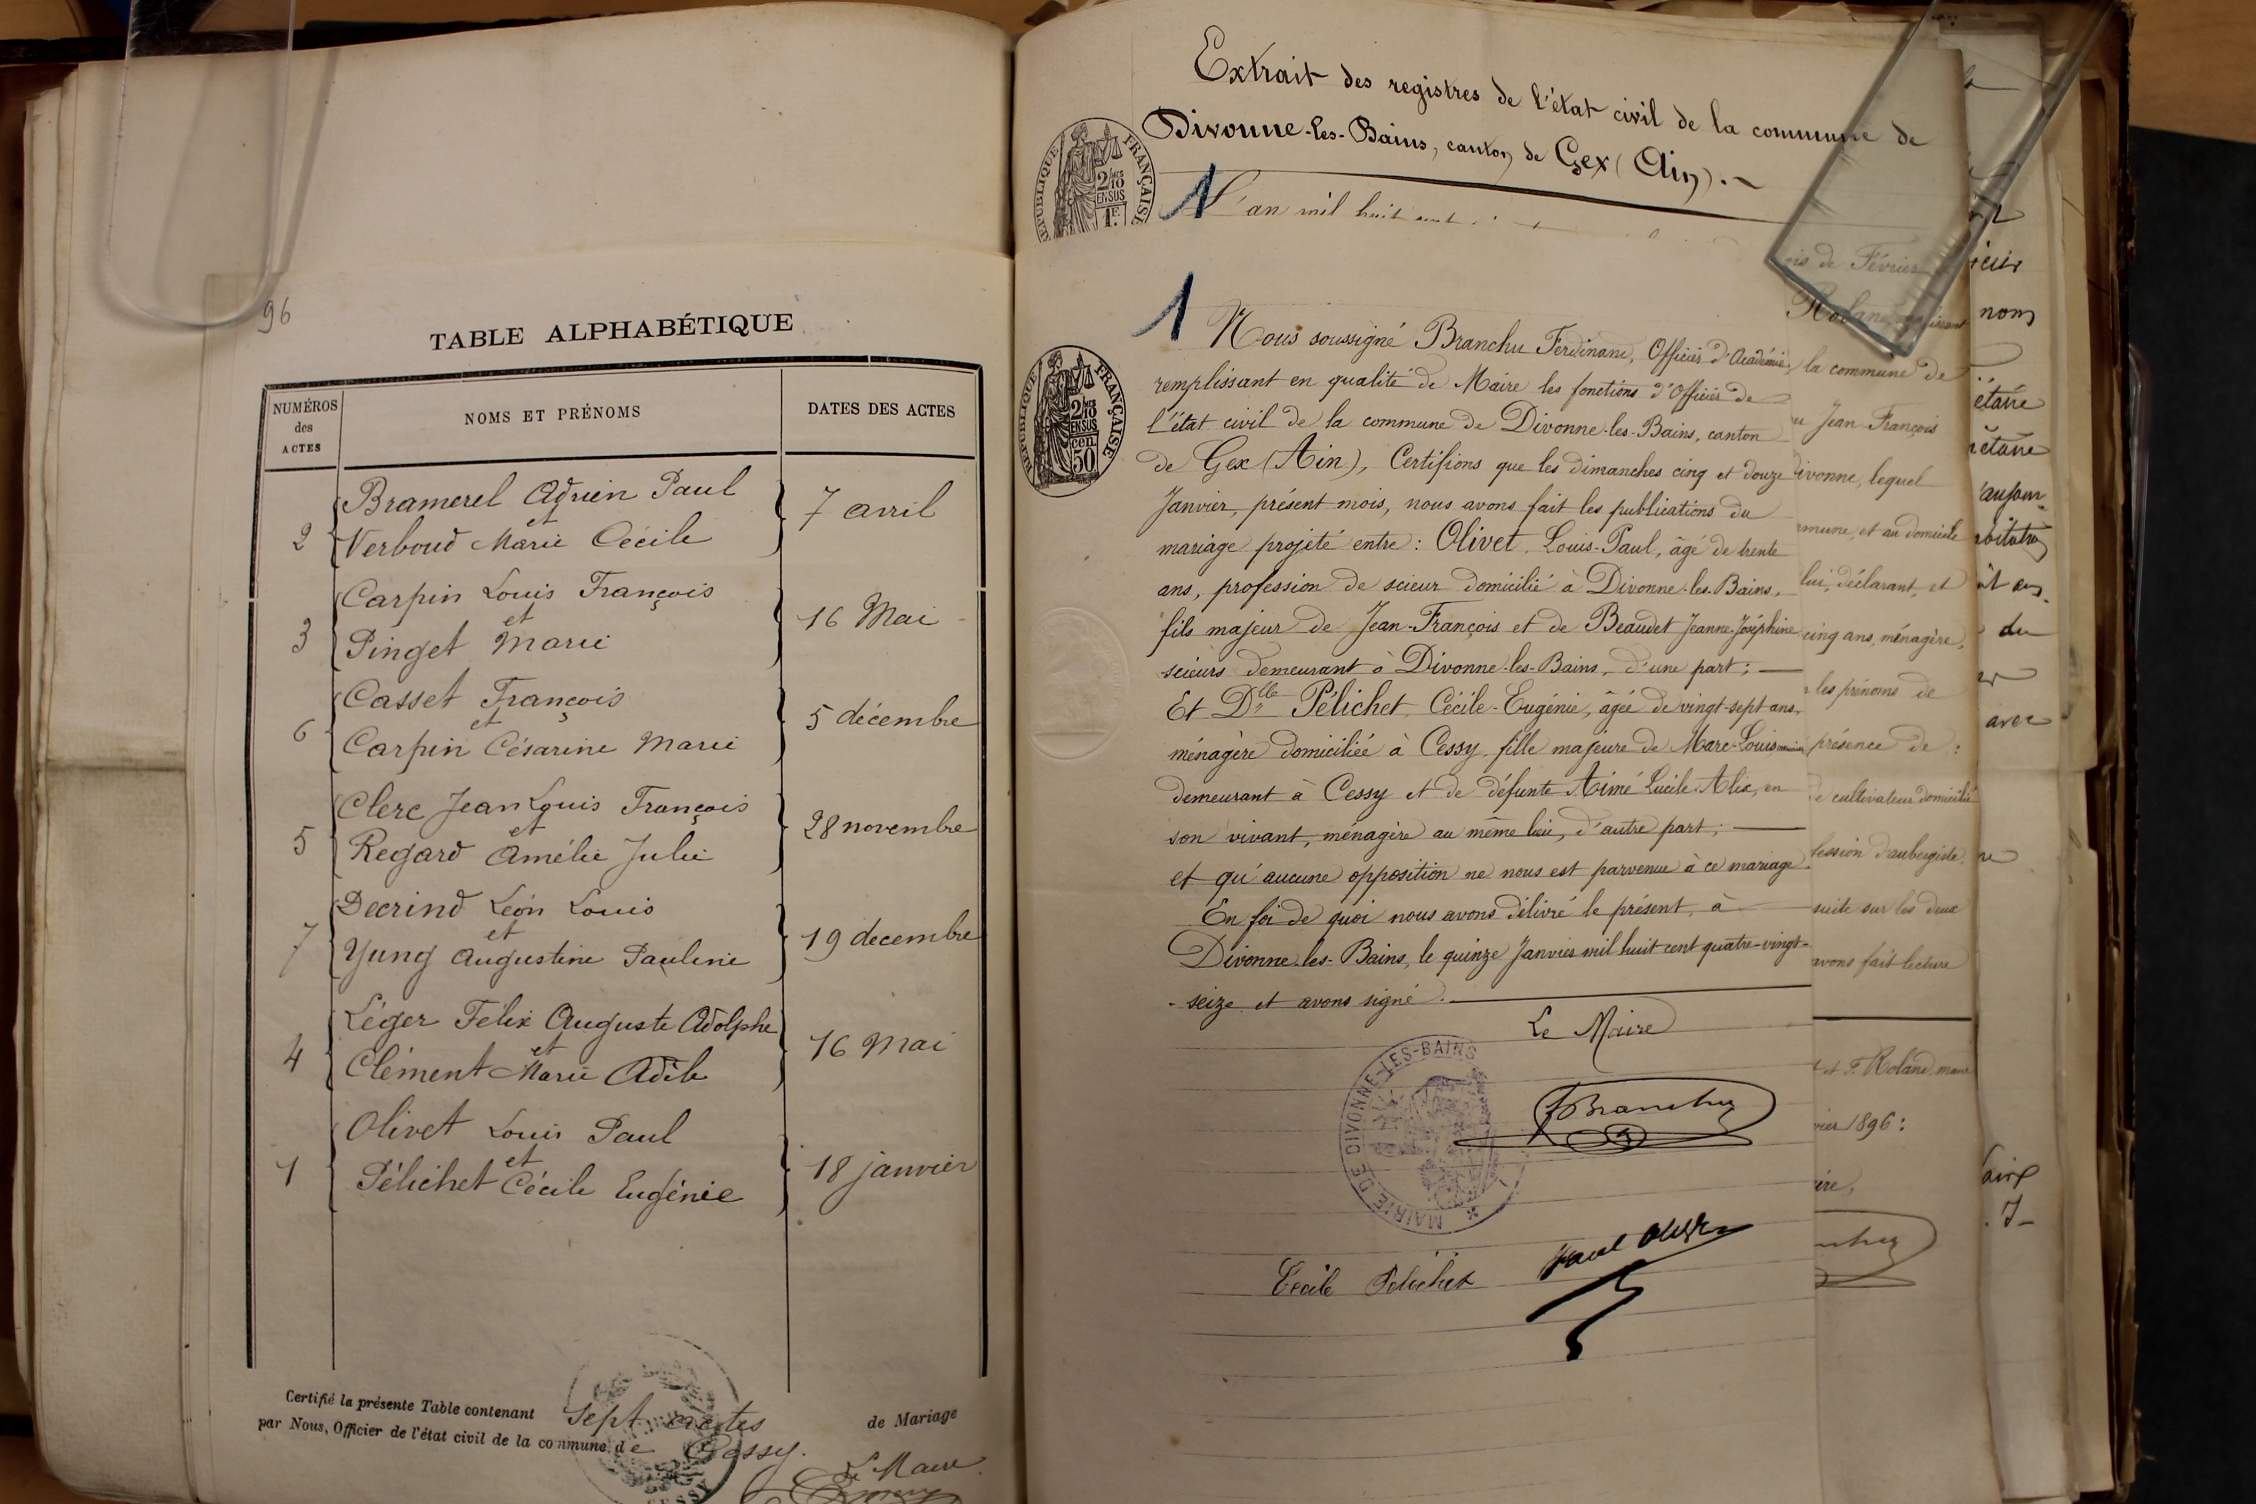 96
TABLE ALPHABÉTIQUE
NUMÉROS des ACTES
NOMS ET PRÉNOMS
DATES DES ACTES
2
Bramerel Adrien Paul
et
Verboud Marie Cécile
7 avril
3
Carpin Louis François
et
Pinget Marie
16 Mai
6
Casset François
et
Carpin Césarine Marie
5 décembre
5
Clerc Jean Louis François
et
Regard Amélie Julie
28 novembre
7
Decrind Léon Louis
et
Yung Augustine Pauline
19 decembre
4
Léger Félix Auguste Adolphe
et
Clément Marie Adèle
16 Mai
1
Olivet Louis Paul
et
Pélichet Cécile Eugénie
18 janvier
Certifié la présente Table contenant sept actes de Mariage
par Nous, Officier de l'état civil de la commune de Cessy.
Le Maire
Extrait des registres de l'état civil de la commune de
Divonne-les-Bains, canton de Gex (Ain).
RÉPUBLIQUE FRANÇAISE
1 L'an mil huit cent
1
RÉPUBLIQUE FRANÇAISE
2/10 EN SUS
50 cen
Nous soussigné Branchu Ferdinand, Officier d'Académie,
remplissant en qualité de Maire les fonctions d'Officier de
l'état civil de la commune de Divonne-les-Bains, canton
de Gex (Ain), Certifions que les dimanches cinq et douze
Janvier, présent mois, nous avons fait les publications du
mariage projeté entre : Olivet, Louis-Paul, âgé de trente
ans, profession de scieur domicilié à Divonne-les-Bains,
fils majeur de Jean-François et de Beaudet Jeanne-Joséphine
scieurs demeurant à Divonne-les-Bains, d'une part ;
Et Dlle Pélichet, Cécile-Eugénie, âgée de vingt-sept ans,
ménagère domiciliée à Cessy, fille majeure de Marc-Louis,
demeurant à Cessy et de défunte Aimé Lucile Alix, en
son vivant, ménagère au même lieu, d'autre part ;
et qu'aucune opposition ne nous est parvenue à ce mariage.
En foi de quoi nous avons délivré le présent, à
Divonne-les-Bains, le quinze Janvier mil huit cent quatre-vingt-
-seize et avons signé.
Le Maire
FBranchu
MAIRIE DE DIVONNE-LES-BAINS
Cécile Pélichet
Paul Olivet
ois de Février
la commune de
Jean-François
Divonne, lequel
et au domicile
lui, déclarant, et
cinq ans, ménagère,
les prénoms de
présence de :
cultivateur domicilié
d'aubergiste,
suite sur les deux
avons fait lecture
et F. Roland, maire
1896 :
nom
du
avec